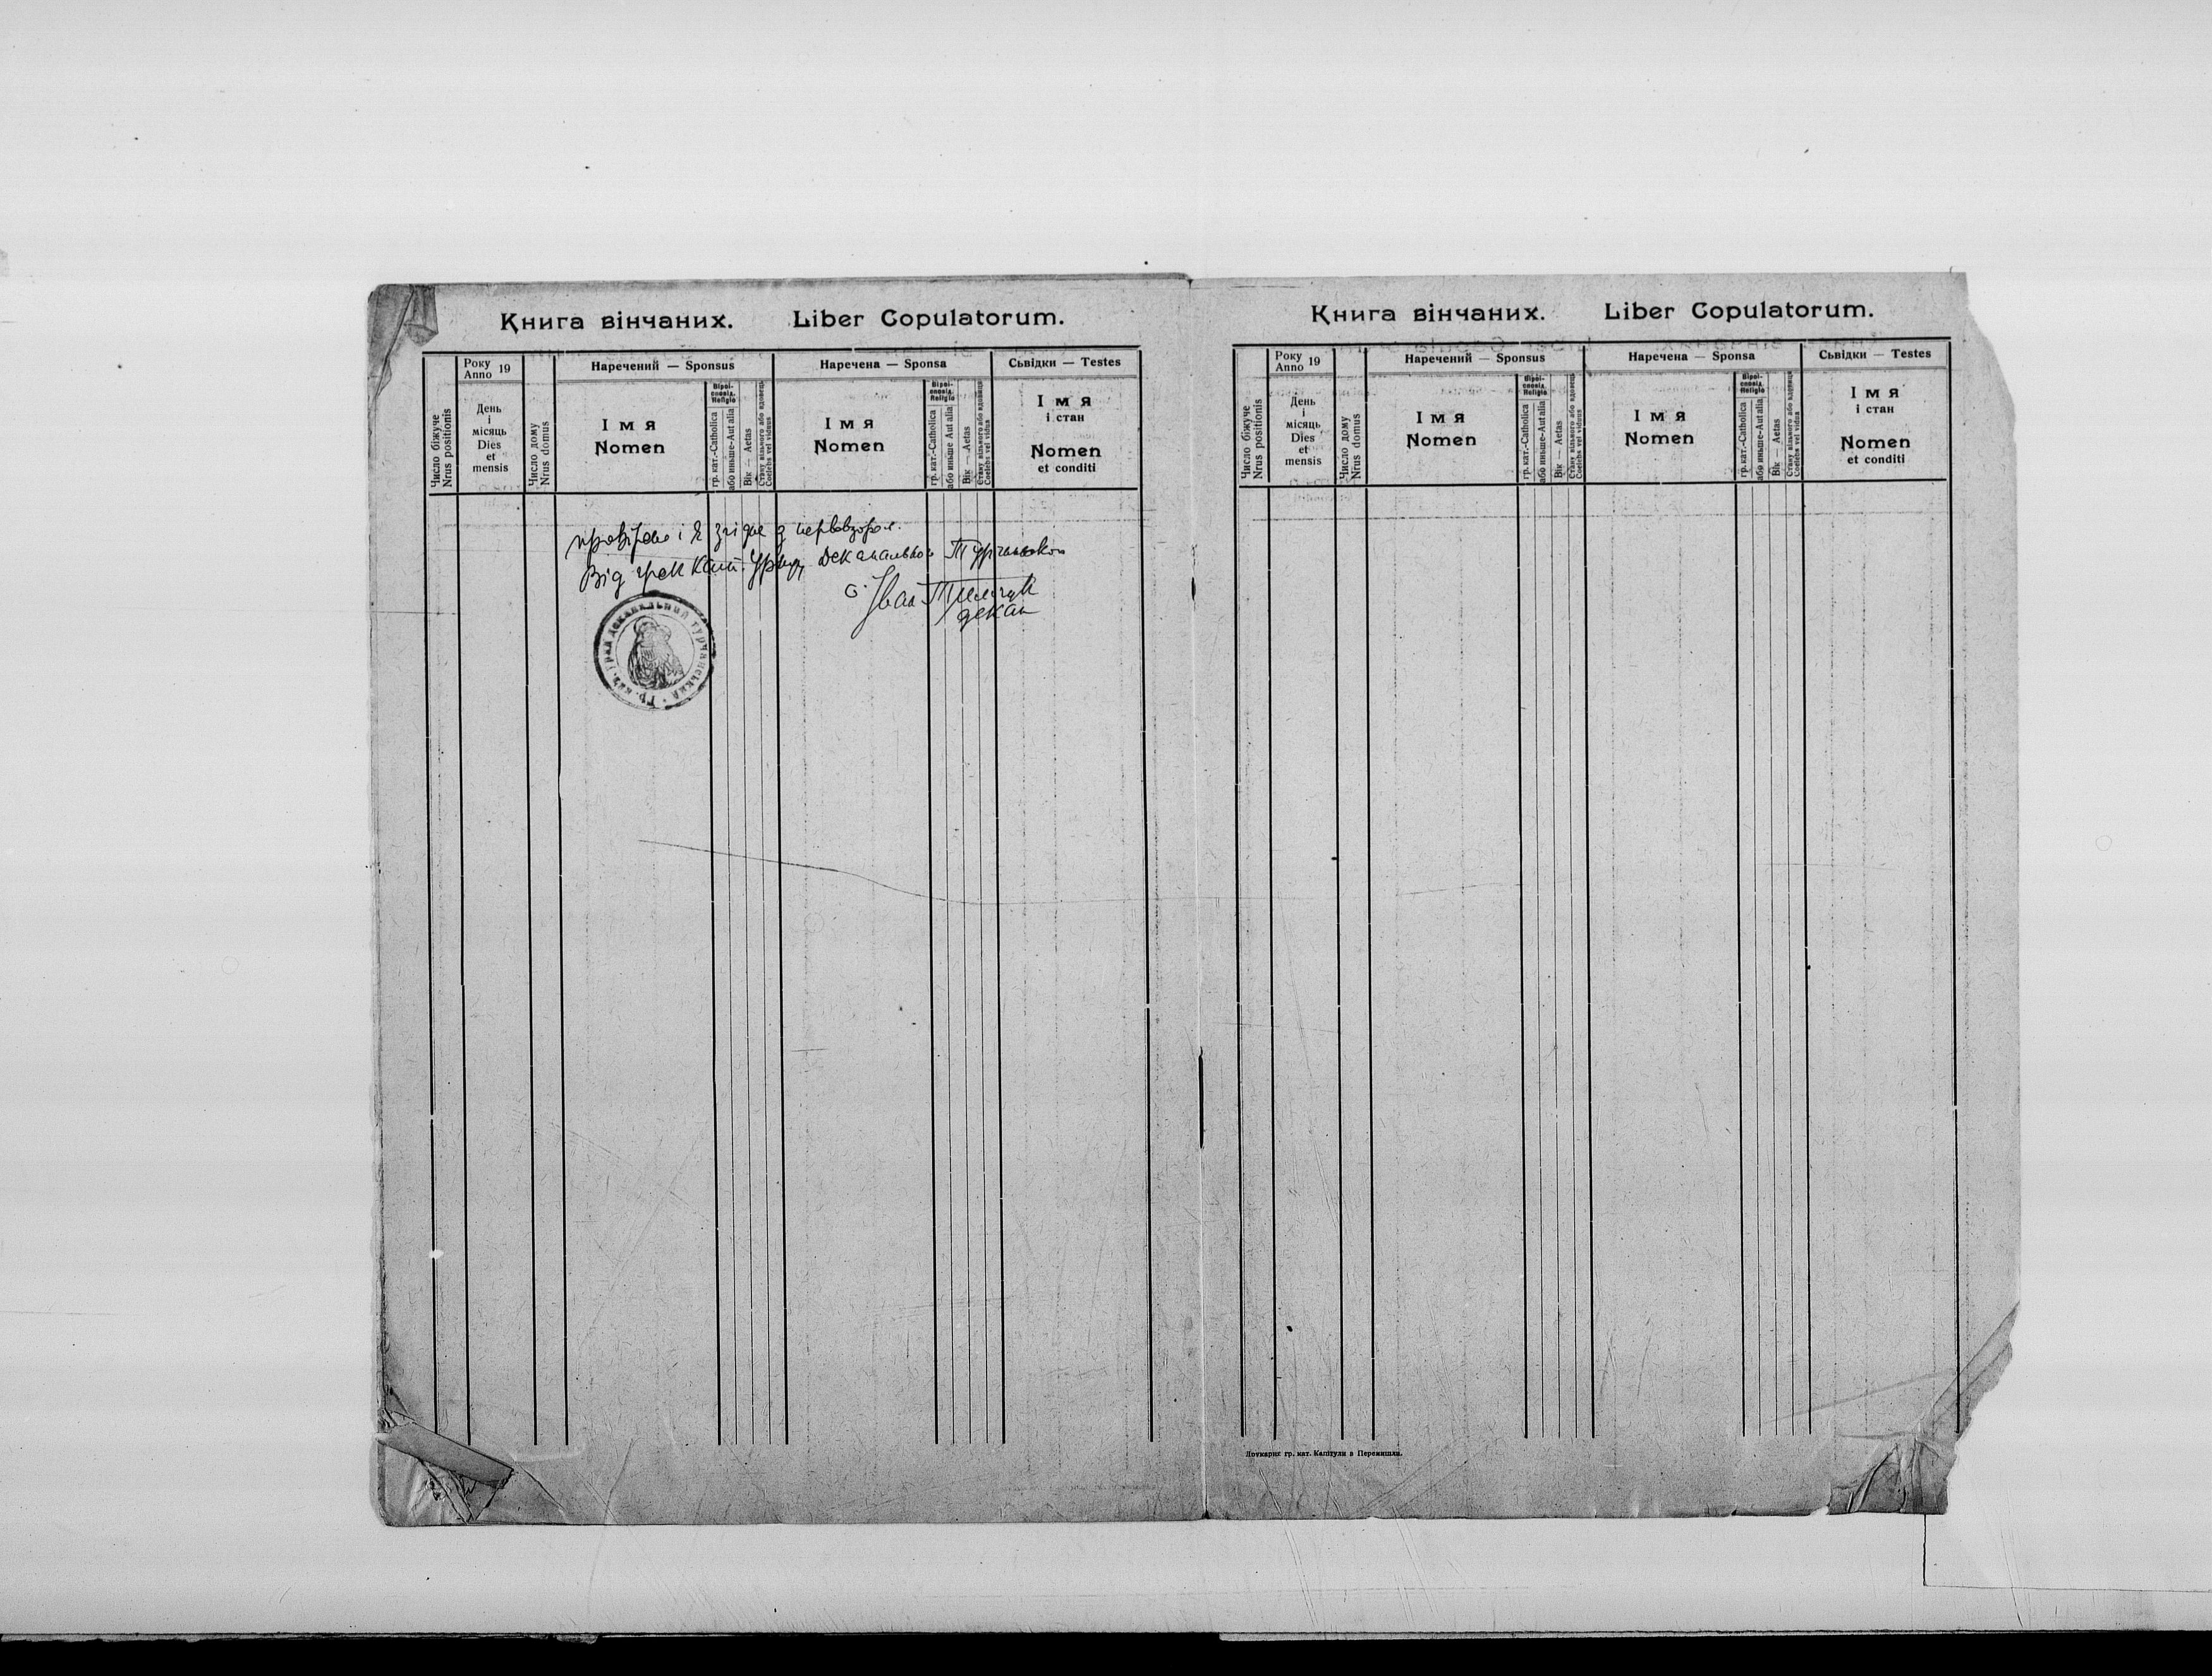 Книга вінчаних. Liber Copulatorum.
Число біжуче
Nrus positionis
Року
Anno 19
День
і
місяць
Dies
et
mensis
Число дому
Nrus domus
Наречений — Sponsus
І м я
Nomen
Віроі-
споvід.
Religio
гр. кат.-Catholica
або иньше-Aut alia
Вік — Aetas
Стану вільного або вдовець
Coelebs vel viduus
Наречена — Sponsa
І м я
Nomen
Religio
гр. кат.-Catholica
або иньше Aut alia
Вік — Aetas
Стану вільного або вдовиця
Coelebs vel vidua
Сьвідки — Testes
І м я
і стан
Nomen
et conditi
провірено і є згідне з первовзором.
Від грек Кат. Уряду Деканального Турчанського
о. Іван
декан
Гр. кат. Уряд деканальний Турчанський
Книга вінчаних. Liber Copulatorum.
Число біжуче
Nrus positionis
Року
Anno 19
День
і
місяць
Dies
et
mensis
Число дому
Nrus domus
Наречений — Sponsus
І м я
Nomen
Religio
гр. кат.-Catholica
або иньше-Aut alia
Вік — Aetas
Стану вільного або вдовець
Coelebs vel viduus
Наречена — Sponsa
І м я
Nomen
Religio
гр. кат.-Catholica
або иньше-Aut alia
Вік — Aetas
Стану вільного або вдовиця
Coelebs vel vidua
Сьвідки — Testes
І м я
і стан
Nomen
et conditi
гр. кат. Капітули в Перемишли.